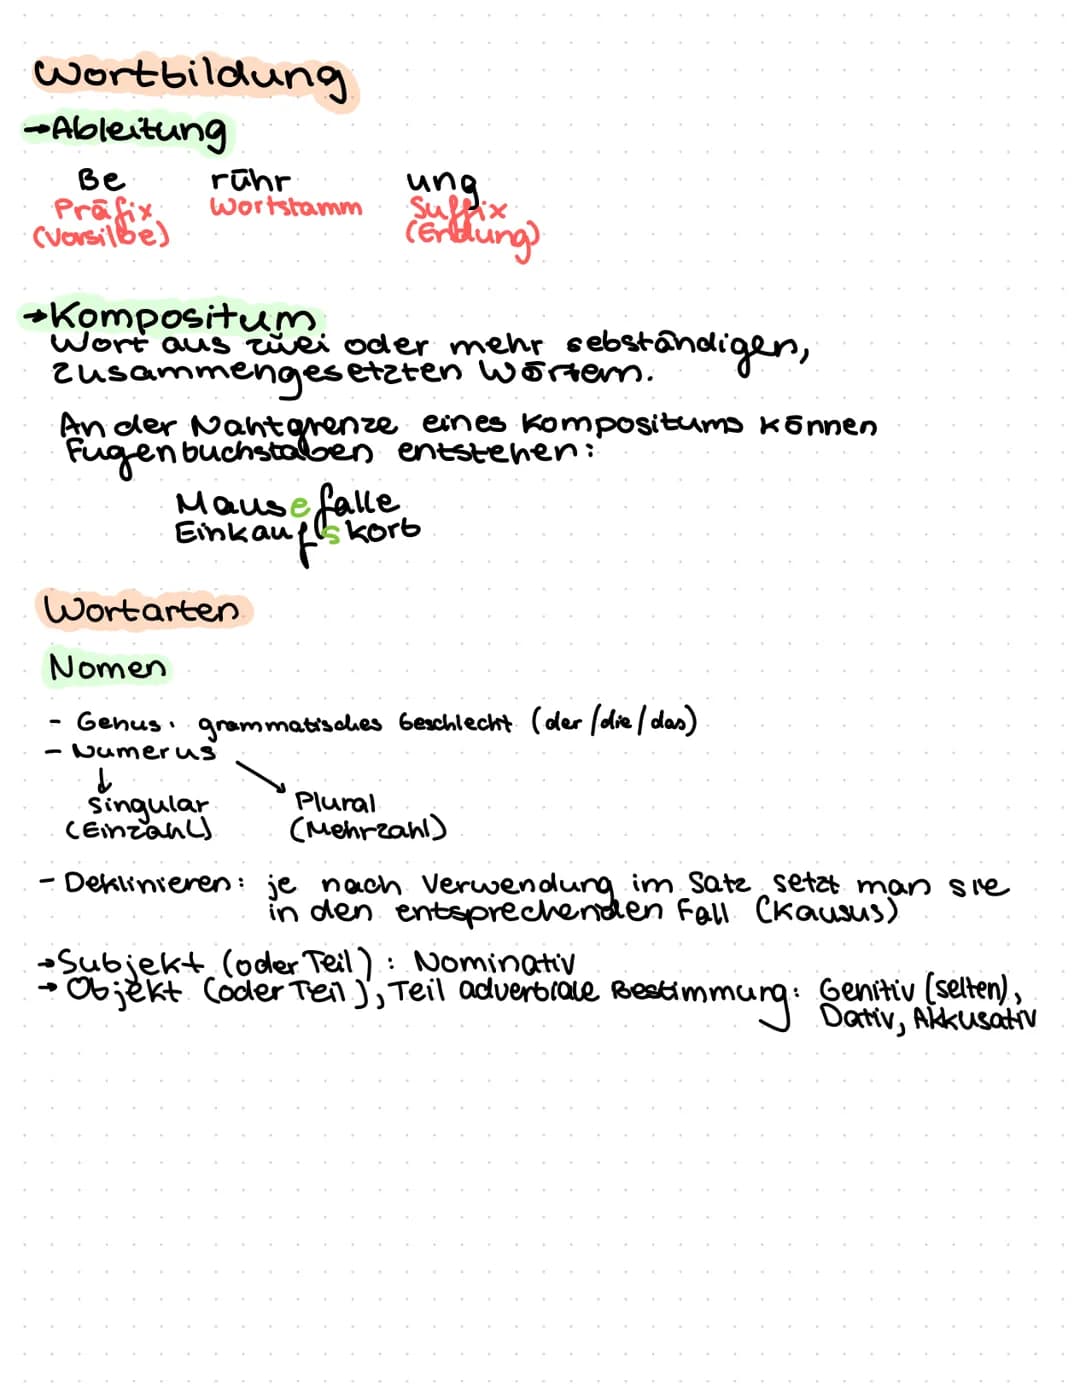 Wortbildung
→Ableitung
Be rühr ung
Präfix Wortstamm Suffix
(Vorsilbe) (Endung)
→Kompositum
Wort aus zwei oder mehr sebständigen,
zusammengesetzten Wörtern.
An der Nahtgrenze eines Kompositums können
Fugenbuchstaben entstehen:
Mausefalle
Einkaufskorb
Wortarten
Nomen
- Genus: grammatisches Geschlecht (der/die/das)
- Numerus
↓
Singular Plural
(Einzahl) (Mehrzahl)
- Deklinieren: je nach Verwendung im Satz setzt man sie
in den entsprechenden Fall (Kausus)
→Subjekt (oder Teil): Nominativ
→ Objekt (oder Teil), Teil adverbiale Bestimmung: Genitiv (selten),
Dativ, Akkusativ